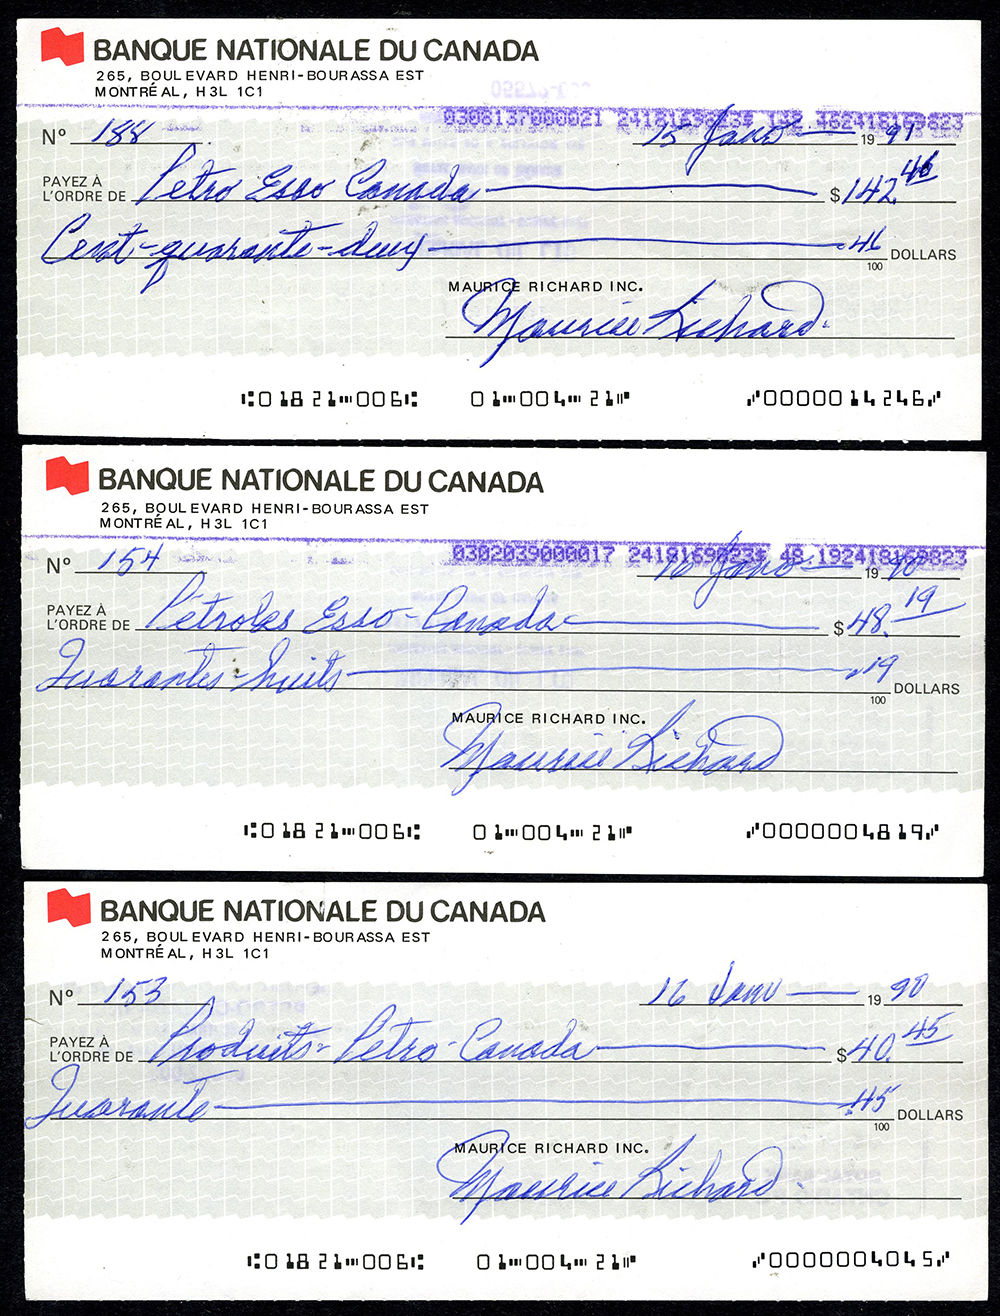 BANQUE NATIONALE DU CANADA
265, BOULEVARD HENRI-BOURASSA EST
MONTRÉAL, H3L 1C1
0308137000021 2418169823$ 142.462418169823
Nº 188 15 Janv 1991
PAYEZ À L'ORDRE DE Pétro Esso Canada $142.46
Cent-quarante-deux 46/100 DOLLARS
MAURICE RICHARD INC.
Maurice Richard
⑆01821⑉006⑆ 01⑉004⑉21⑈ ⑇0000014246⑇
BANQUE NATIONALE DU CANADA
265, BOULEVARD HENRI-BOURASSA EST
MONTRÉAL, H3L 1C1
0302039000017 2418169823$ 48.192418169823
Nº 154 16 Janv 1990
PAYEZ À L'ORDRE DE Pétroles Esso-Canada $48.19
Quarantes-huits 19/100 DOLLARS
MAURICE RICHARD INC.
Maurice Richard
⑆01821⑉006⑆ 01⑉004⑉21⑈ ⑇0000004819⑇
BANQUE NATIONALE DU CANADA
265, BOULEVARD HENRI-BOURASSA EST
MONTRÉAL, H3L 1C1
Nº 153 16 Janv 1990
PAYEZ À L'ORDRE DE Produits-Petro-Canada $40.45
Quarante 45/100 DOLLARS
MAURICE RICHARD INC.
Maurice Richard
⑆01821⑉006⑆ 01⑉004⑉21⑈ ⑇0000004045⑇